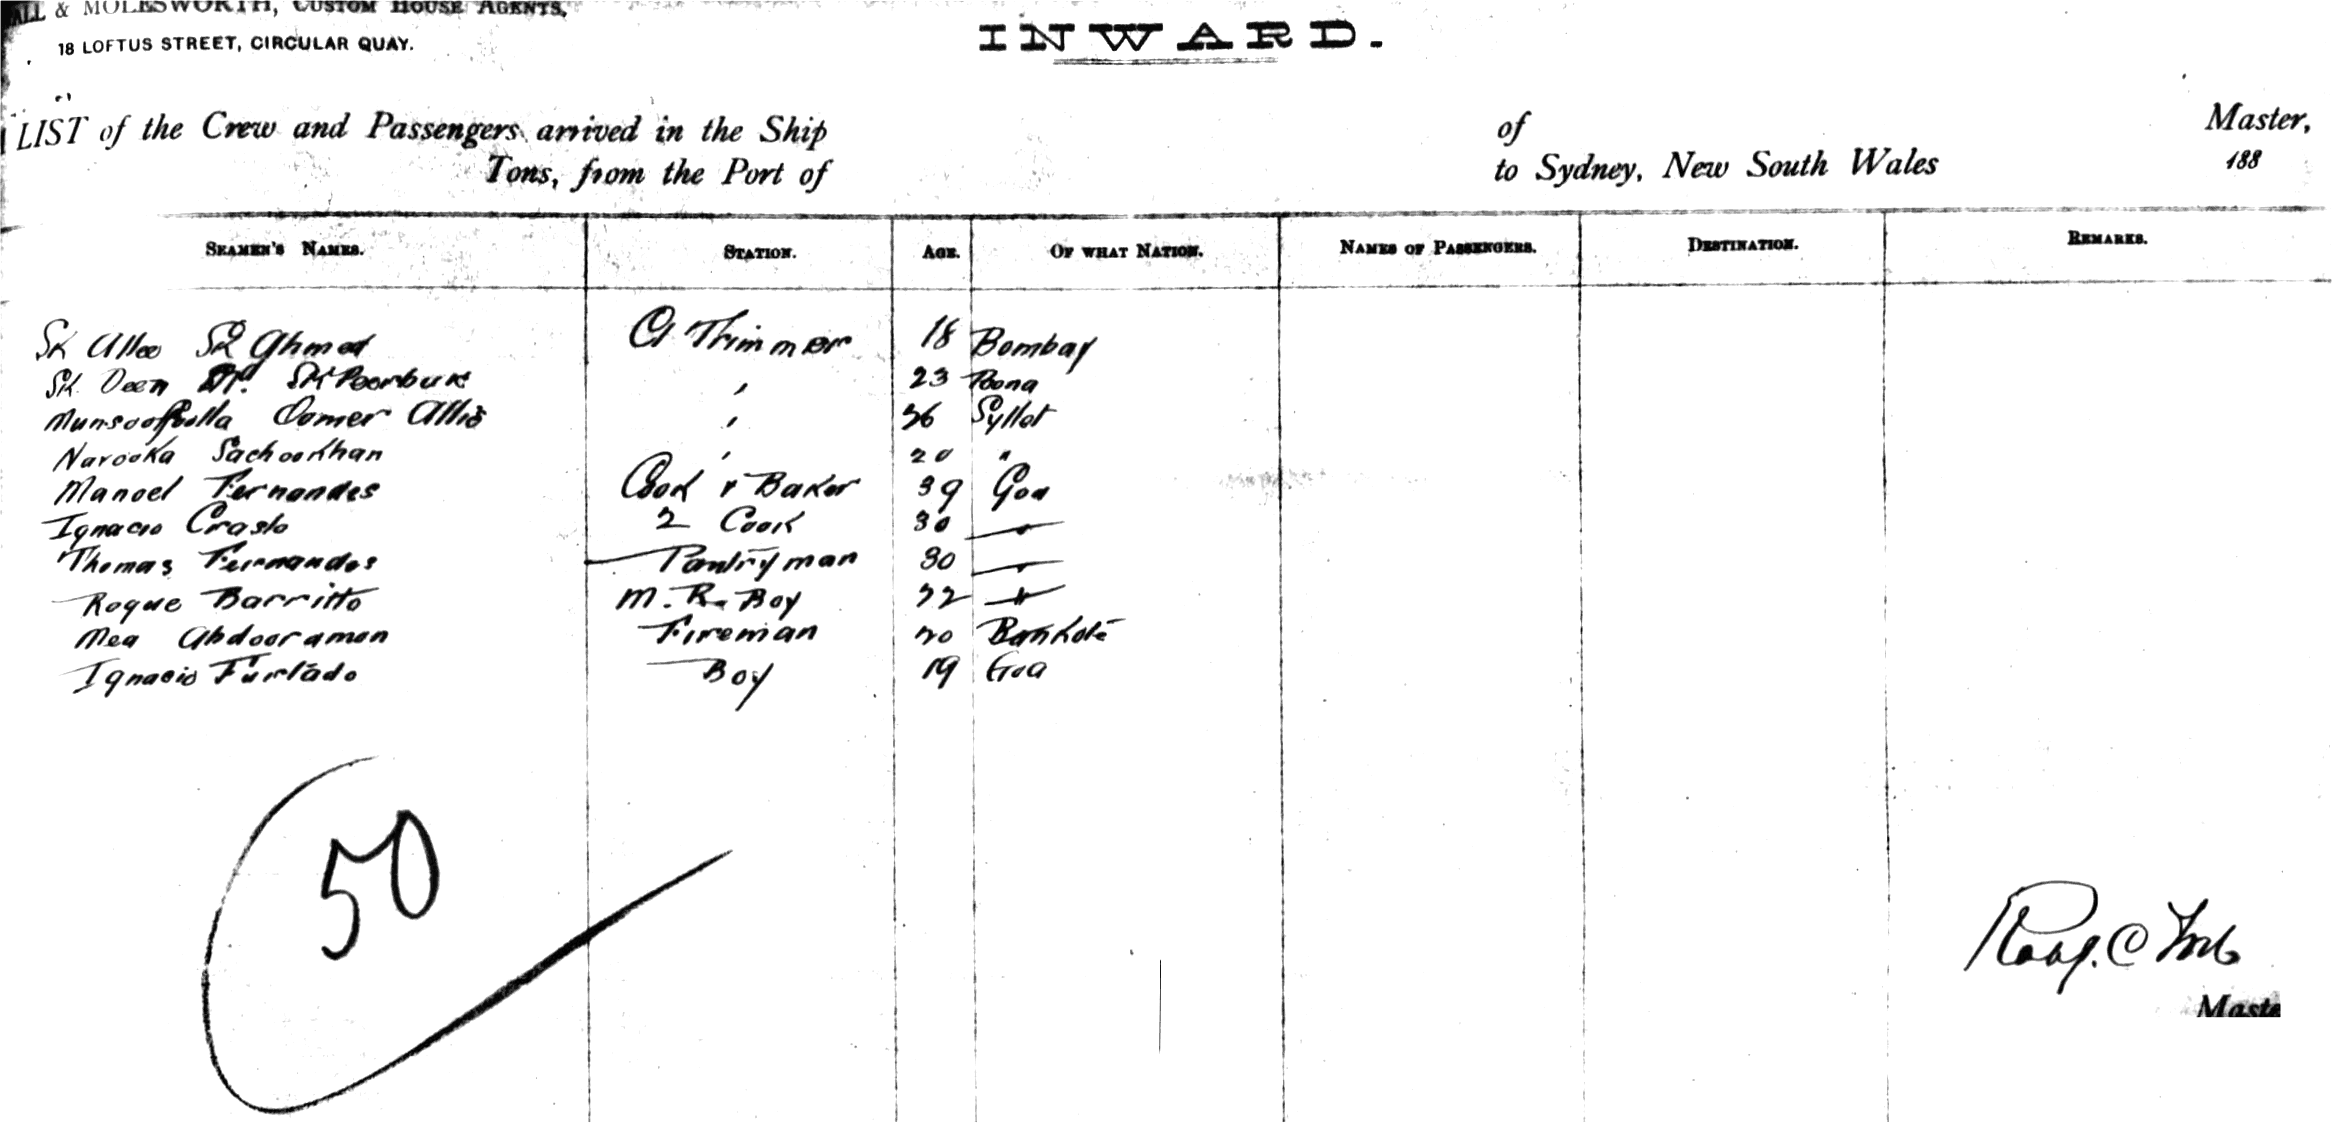 ALL & MOLESWORTH, CUSTOM HOUSE AGENTS,
18 LOFTUS STREET, CIRCULAR QUAY.
INWARD.
LIST of the Crew and Passengers arrived in the Ship of Master,
Tons, from the Port of to Sydney, New South Wales 188
SEAMEN'S NAMES. STATION. AGE. OF WHAT NATION. NAMES OF PASSENGERS. DESTINATION. REMARKS.
Sk Allee Sk Ahmed Cl Trimmer 18 Bombay
Sk Deen Sk Peerbux " 23 Poona
Oomer Allie " 36 Syllet
Narooka Sachookhan " 20 "
Manoel Fernandes Cook & Baker 39 Goa
Ignacio Crasto 2 Cook 30 "
Thomas Fernandes Pantryman 30 "
Roque Barritto M. R. Boy 22 "
Mea Abdooraman Fireman 20 Bankote
Ignacio Furtado Boy 19 Goa
50
Maste